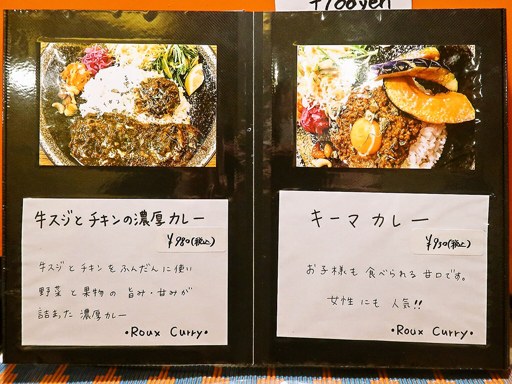 +100yen
牛スジとチキンの濃厚カレー
¥980(税込)
牛スジとチキンをふんだんに使い
野菜と果物の旨み・甘みが
詰まった濃厚カレー
•Roux Curry•
キーマカレー
¥930(税込)
お子様も食べられる甘口です。
女性にも人気!!
•Roux Curry•